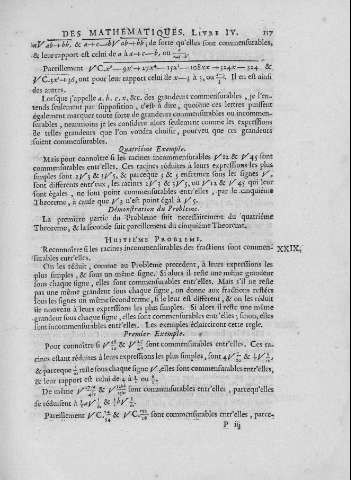 DES MATHÉMATIQUES, LIVRE IV. 117
de sorte qu'elles sont commensurables,
& leur rapport est celui de
Pareillement
ont pour leur rapport celui de Il en est ainsi
des autres.
Lorsque j'appelle a. b. c, x, &c. des grandeurs commensurables, je l'en-
tends seulement par supposition, c'est à dire, quoique ces lettres puissent
également marquer toute sorte de grandeurs commensurables ou incommen-
surables, neanmoins je les considere alors seulement comme les expressions
de telles grandeurs que l'on voudra choisir, pourvû que ces grandeurs
soient commensurables.
Quatriéme Exemple.
Mais pour connoître si les racines incommensurables √12 & √45 sont
commensurables entr'elles. Ces racines réduites à leurs expressions les plus
simples sont 2√3 & 3√5, & parceque 3 & 5 enfermez sous les signes √,
sont differents entr'eux, les racines 2√3 & 3√5, ou √12 & √45 qui leur
sont égales, ne sont point commensurables entr'elles, par le cinquiéme
Theoreme, à cause que √3 n'est point égal à √5.
Démonstration du Probleme.
La premiere partie du Probleme suit necessairement du quatriéme
Theoreme, & la seconde suit pareillement du cinquiéme Theoreme.
HUITIÉME PROBLEME.
Reconnoître si les racines incommensurables des fractions sont commen- XXIX.
surables entr'elles.
On les réduit, comme au Probleme precedent, à leurs expressions les
plus simples, & sous un même signe. Si alors il reste une même grandeur
sous chaque signe, elles sont commensurables entr'elles. Mais s'il ne reste
pas une même grandeur sous chaque signe, on donne aux fractions restées
sous les signes un même second terme, si le leur est different, & on les réduit
de nouveau à leurs expressions les plus simples. Si alors il reste une même
grandeur sous chaque signe, elles sont commensurables entr'elles; sinon, elles
sont incommensurables entr'elles. Les exemples éclairciront cette regle.
Premier Exemple.
Pour connoître si sont commensurables entr'elles. Ces ra-
cines étant réduites à leurs expressions les plus simples, sont
& parceque reste sous chaque signe √, elles sont commensurables entr'elles,
& leur rapport est celui de
De même sont commensurables entr'elles, parcequ'elles
se réduisent à
Pareillement sont commensurables entr'elles, parce-
P iij